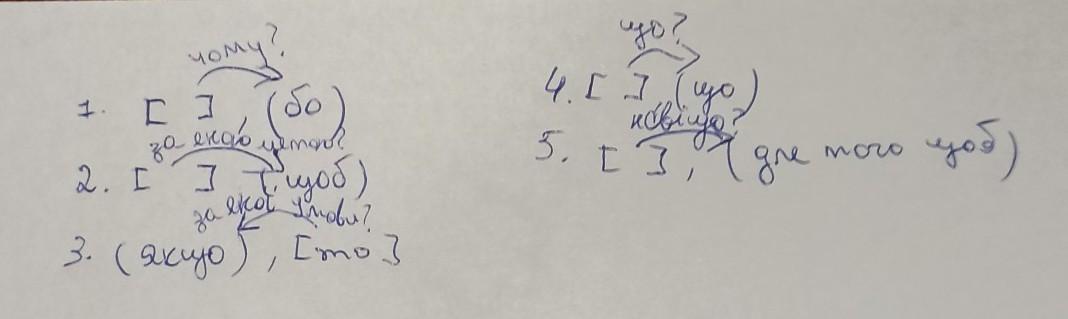 чому?
1. [ ], (бо)
за якою метою?
2. [ ] (щоб)
за якої умови?
3. (якщо), [то]
що?
4. [ ] (що)
навіщо?
5. [ ], (для того щоб)